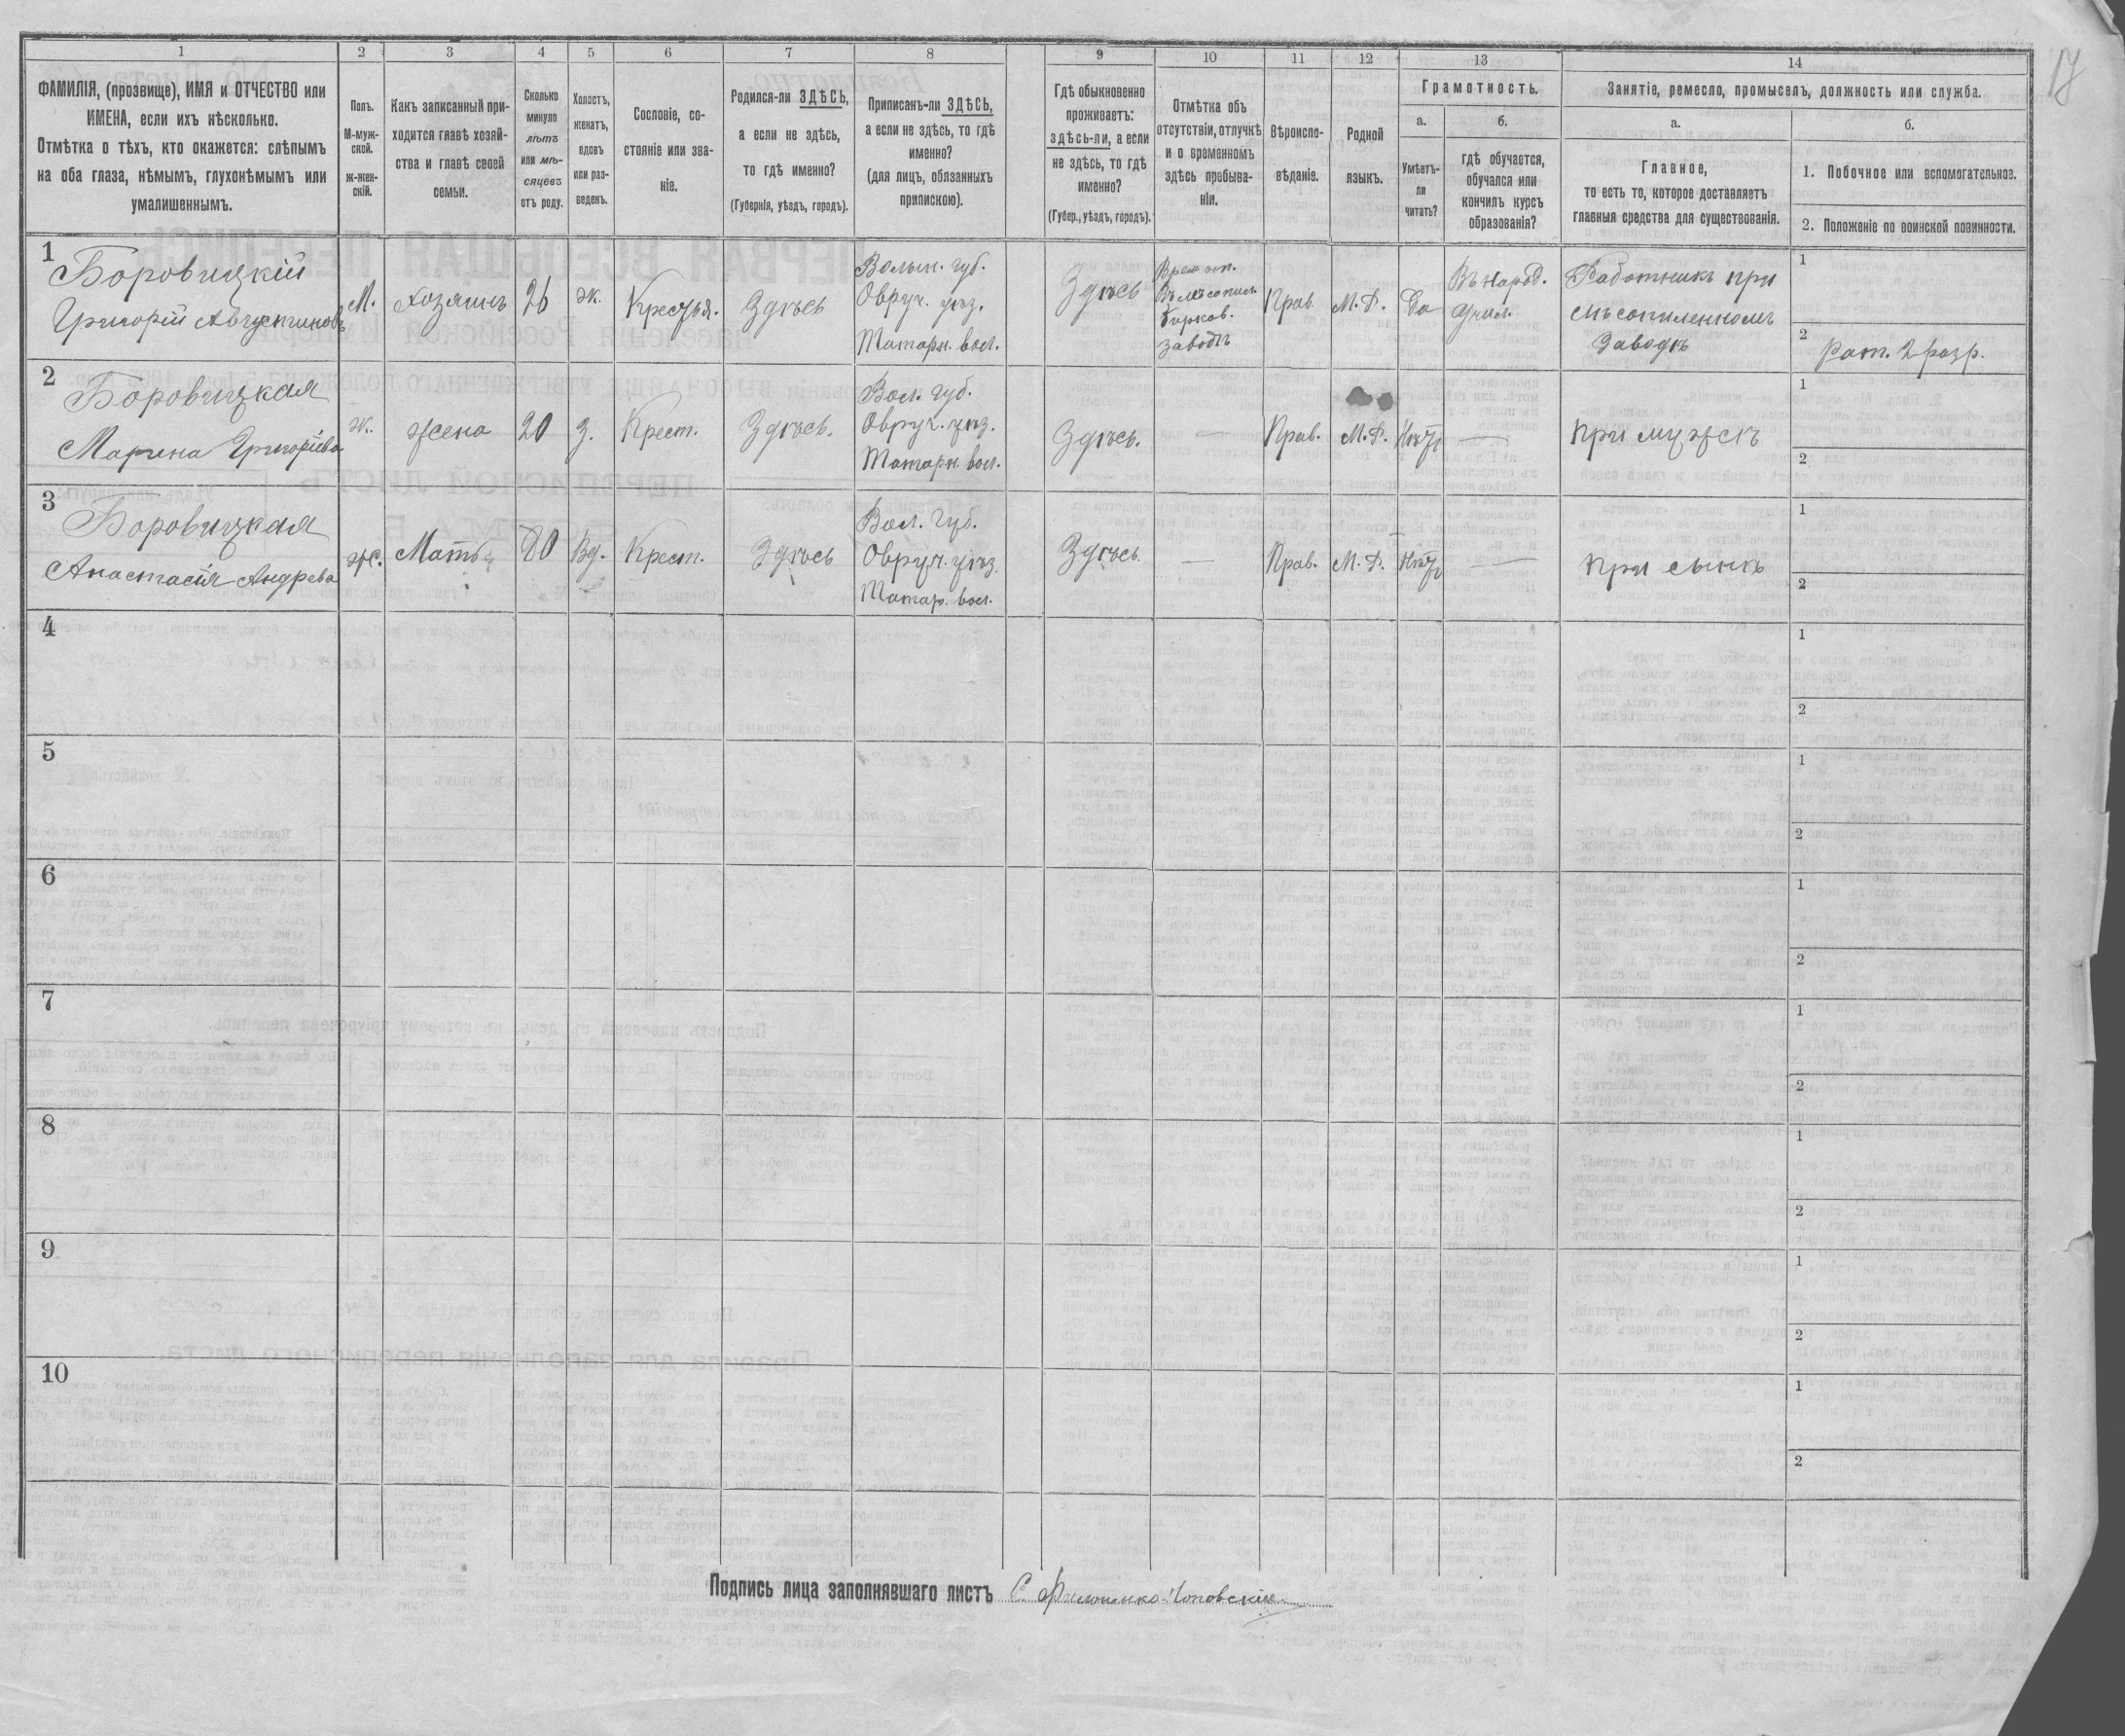 17
1 2 3 4 5 6 7 8 9 10 11 12 13 14
ФАМИЛІЯ, (прозвище), ИМЯ и ОТЧЕСТВО или
ИМЕНА, если ихъ нѣсколько.
Отмѣтка о тѣхъ, кто окажется: слѣпымъ
на оба глаза, нѣмымъ, глухонѣмымъ или
умалишеннымъ.
Полъ.
М-муж-
ской.
ж-жен-
скій.
Какъ записанный при-
ходится главѣ хозяй-
ства и главѣ своей
семьи.
Сколько
минуло
лѣтъ
или мѣ-
сяцевъ
отъ роду.
Холостъ,
женатъ,
вдовъ
или раз-
веденъ.
Сословіе, со-
стояніе или зва-
ніе.
Родился-ли ЗДѢСЬ,
а если не здѣсь,
то гдѣ именно?
(Губернія, уѣздъ, городъ).
Приписанъ-ли ЗДѢСЬ,
а если не здѣсь, то гдѣ
именно?
(для лицъ, обязанныхъ
припискою).
Гдѣ обыкновенно
проживаетъ:
здѣсь-ли, а если
не здѣсь, то гдѣ
именно?
(Губер., уѣздъ, городъ).
Отмѣтка объ
отсутствіи, отлучкѣ
и о временномъ
здѣсь пребыва-
ніи.
Вѣроиспо-
вѣданіе.
Родной
языкъ.
Грамотность.
а.
Умѣетъ-
ли
читать?
б.
гдѣ обучается,
обучался или
кончилъ курсъ
образованія?
Занятіе, ремесло, промыселъ, должность или служба.
а.
Главное,
то есть то, которое доставляетъ
главныя средства для существованія.
б.
1. Побочное или вспомогательное.
2. Положеніе по воинской повинности.
1
Боровицкій
Григорій Августиновъ
М.
Хозяинъ
26
ж.
Крестья.
Здѣсь
Волын. губ.
Овруч. уѣз.
Татарн. вол.
Здѣсь
заводѣ
Прав.
М. Р.
Да
Въ народ.
Учил.
Работникъ при
лѣсопиленномъ
Заводѣ
1
2 Рат. 2 разр.
2
Боровицкая
Марина Григоріева
ж.
жена
20
З.
Крест.
Здѣсь.
Вол. губ.
Овруч. уѣз.
Татарн. вол.
Здѣсь.
—
Прав.
М. Р.
Нѣтъ
—
при мужѣ
1
2
3
Боровицкая
Анастасія Андрева
ж.
Мать
80
Вд.
Крест.
Здѣсь
Вол. губ.
Овруч. уѣз.
Татар. вол.
Здѣсь
—
Прав.
М. Р.
Нѣтъ
—
при сынѣ
1
2
4
1
2
5
1
2
6
1
2
7
1
2
8
1
2
9
1
2
10
1
2
Подпись лица заполнявшаго листъ С.